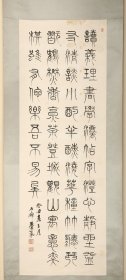 讀義理書學法帖字澄心靜坐益
友清談小酌半醺澆花種竹聽琴
玩鶴焚香煎茶登城觀山寓意弈
棋雖有他樂吾不易矣